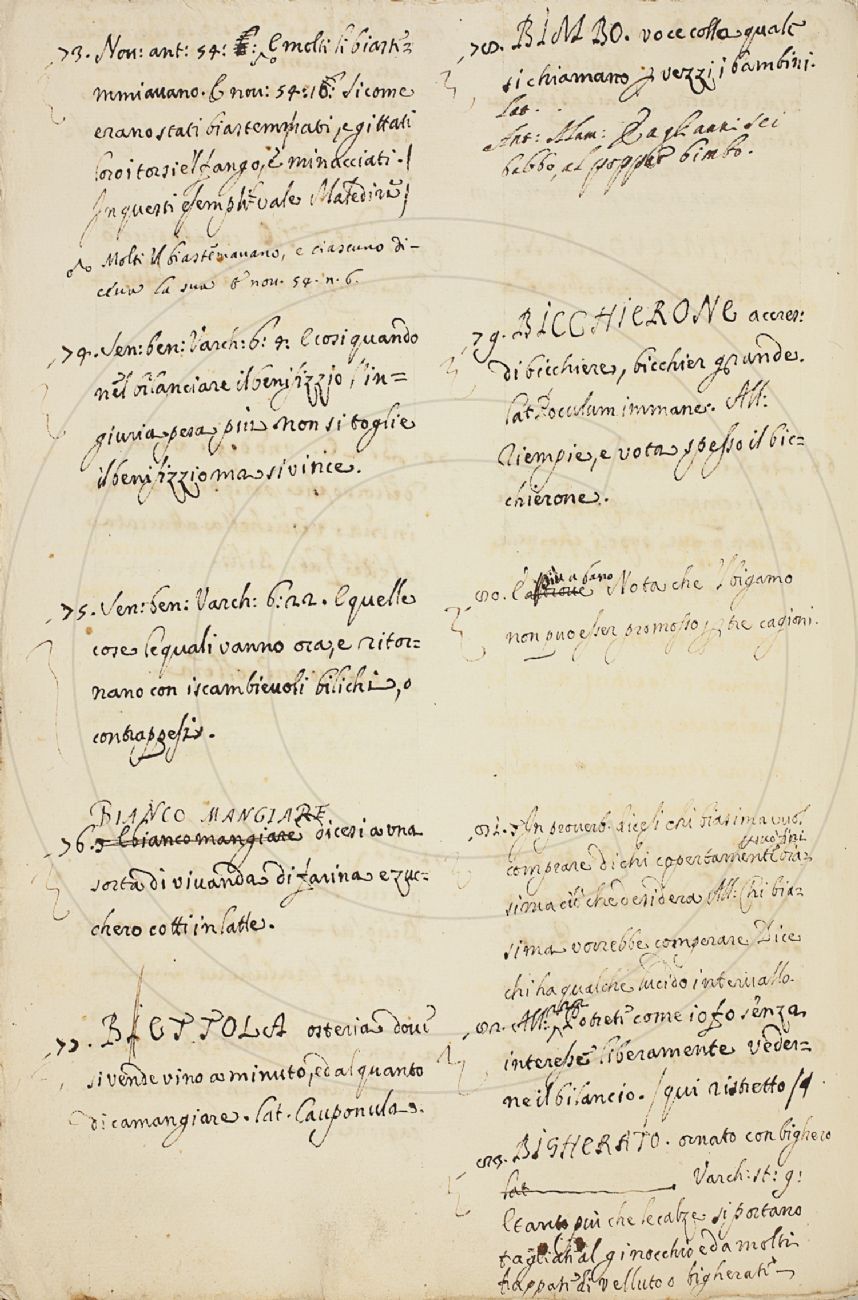 73. Nov: ant: 54: E molti li biaste-
mmiavano. E nov: 54: 16: Si come
erano stati biastemmati, e gittati
loro i torsi e'l fango, e minacciati. /
In questi esempli vale Maledire /
Molti il biastemavano, e ciascuno di-
ceva la sua & nov. 54. n. 6.
74. Sen: ben: Varch: 6: 4: E così quando
nel bilanciare il benifizzio, l'in=
giuria pesa più non si toglie
il benifizzio ma si vince.
75. Sen: ben: Varch: 6: 22. E quelle
cose le quali vanno ora, e ritor=
nano con iscambievoli bilichi, o
contrappesi.
BIANCO MANGIARE
76. E bianco mangiare dicesi a una
sorta di vivanda di farina e zuc=
chero cotti in latte.
77. BETTOLA osteria dove
si vende vino a minuto, ed alquanto
di camangiare. Lat. Cauponula
78. BIMBO. voce colla quale
si chiamano p vezzi i bambini.
Lat.
Ant: Alam: sei
babbo, al bimbo.
79. BICCHIERONE accres:
di bicchiere, bicchier grande.
Lat. Poculum immane. All:
Riempie, e vota spesso il bic=
chierone.
80. Nota che 'l bigamo
non può esser promosso p tre cagioni.
81. In proverb. dicesi chi biasima vuol
comprare di chi copertamente
sima ciò che desidera All: Chi bia-
sima vorrebbe comperare Dice
chi ha qualche lucido intervallo.
82. All: Potrete come io fo senza
interesse liberamente veder=
ne il bilancio. / qui ristretto /
83. BIGHERATO. ornato con bighero
Lat Varch: st: 9:
E tanto più che le calze si portano
tagliate al ginocchio e da molti
frappate di velluto o bigherate